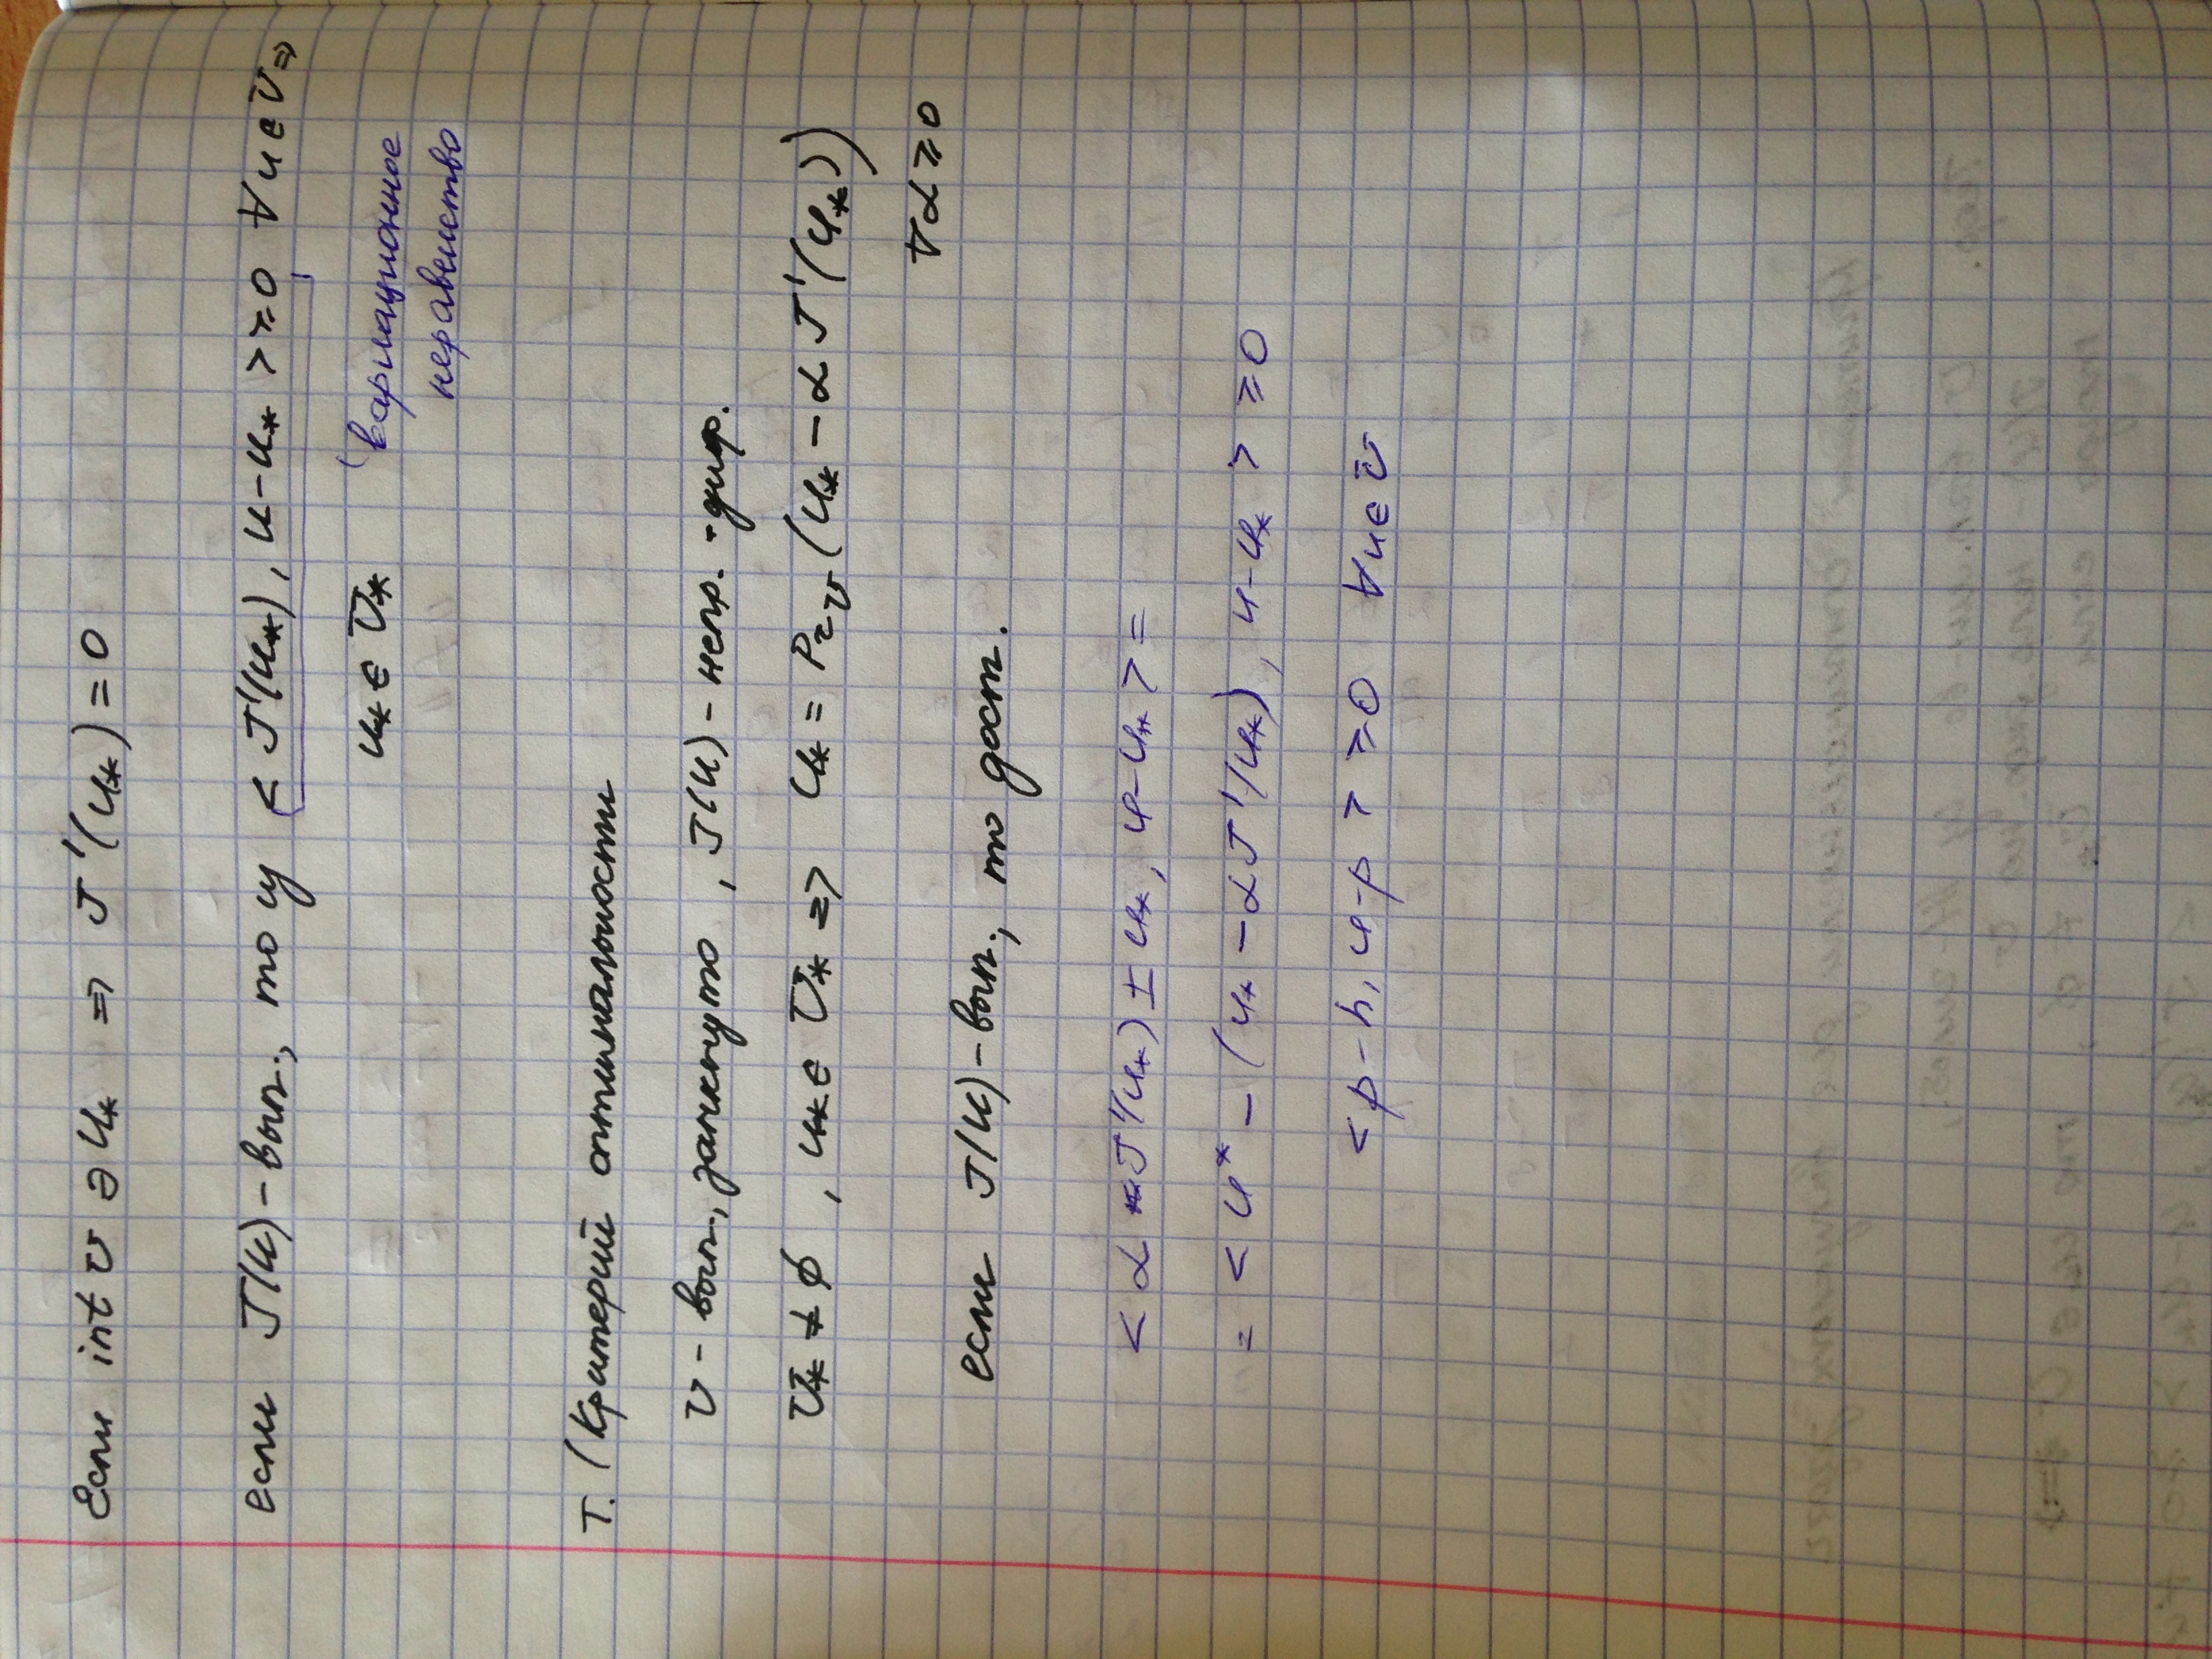 Если int U ∋ u* ⇒ J'(u*) = 0
если J(u) - вып., то из < J'(u*), u-u* > ≥ 0 ∀ u ∈ U ⇒
u* ∈ U*
вариационное
неравенство
Т. (Критерий оптимальности
U - вып., замкнуто, J(u) - непр. - диф.
U* ≠ ∅, u* ∈ U* => u* = Pr_U (u* - αJ'(u*))
∀α ≥ 0
если J(u) - вып., то дост.
< α J'(u*) ± u*, u-u* > =
= < u* - (u* - αJ'(u*), u-u* > ≥ 0
< p-h, u-p > ≥ 0 ∀u ∈ U